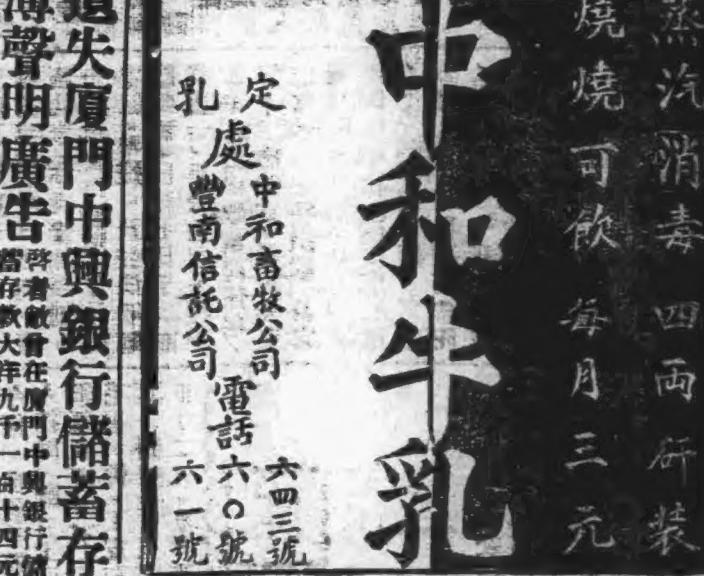 蒸汽消毒四両研装
燒燒可飲每月三元
中和牛乳
定乳處
中和畜牧公司
豐南信託公司
電話
六四三號
六〇號
六一號
遺失厦門中興銀行儲蓄存
簿聲明廣告
啓者敝曾在厦門中興銀行儲
蓄存款大洋九千一百十四元